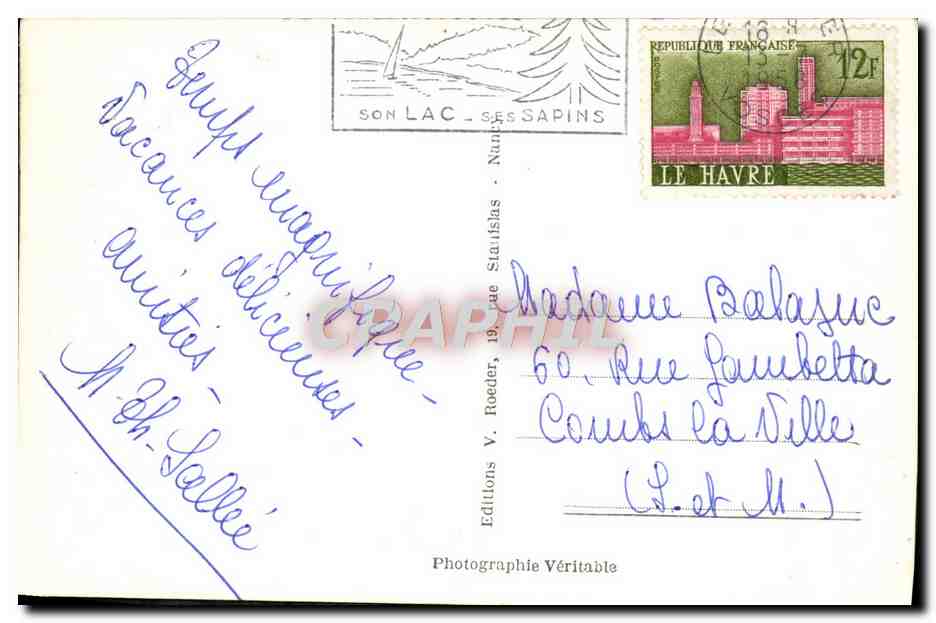 SON LAC - SES SAPINS
REPUBLIQUE FRANÇAISE
12F
LE HAVRE
Temps magnifique -
Vacances délicieuses -
amitiés -
M. Th. Sallée
Editions V. Roeder, 19, rue Stanislas - Nancy
Madame Balazuc
60, Rue Gambetta
Combs la Ville
(S. et M.)
Photographie Véritable
CPAPHIL